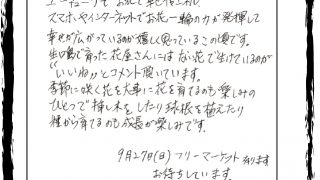 スマホやインターネットでお花一輪の力が発揮して
幸せが広がっているのが嬉しく思っているこの頃です。
生口島で育った花屋さんにはない花で生けているのが
"いいね"とコメント頂いています。
季節に咲く花を大事に花を育てるのも楽しみの
ひとつで挿し木をしたり球根を植えたり
種から育てるのも成長が楽しみです。
9月27日(日)フリーマーケット有ります
お待ちしています。